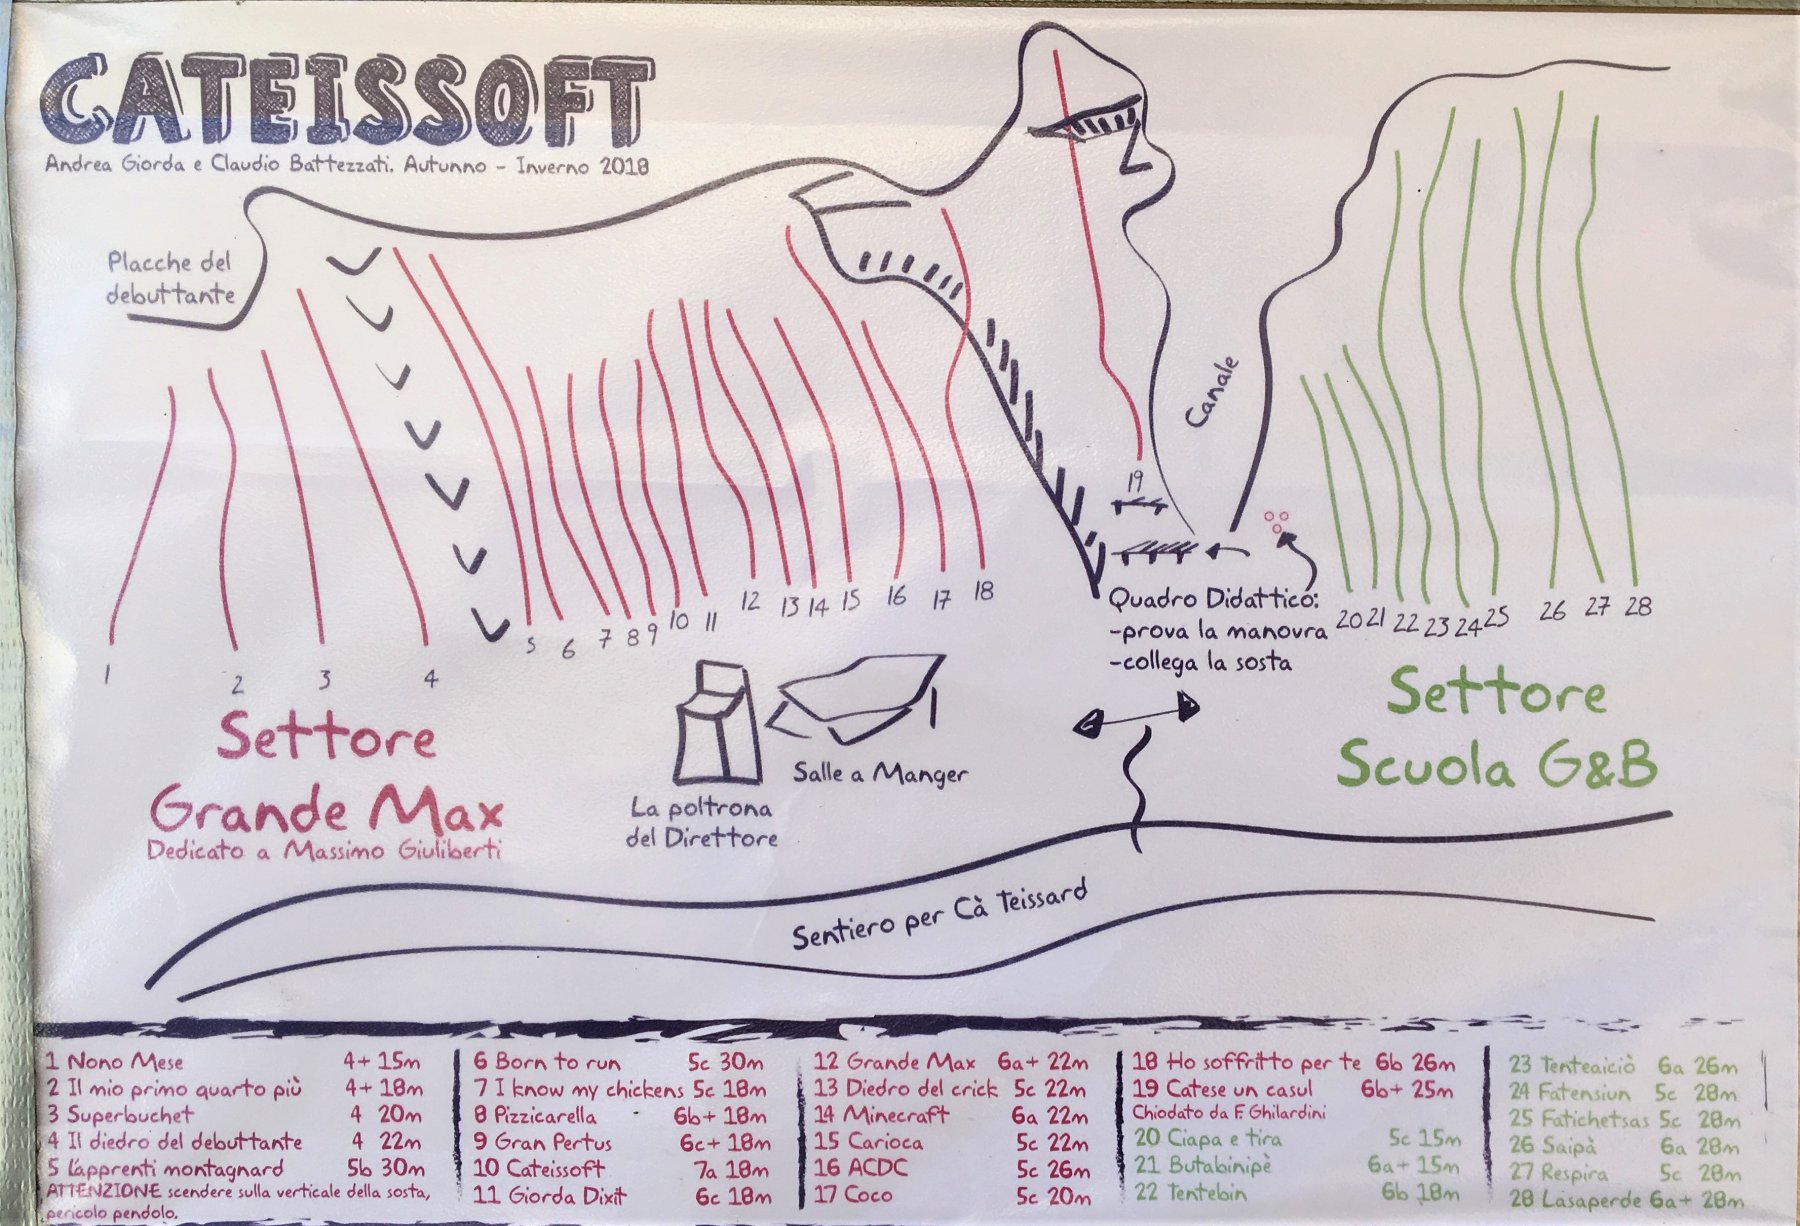 CATEISSOFT
Andrea Giorda e Claudio Battezzati. Autunno - Inverno 2018
Placche del
debuttante
Canale
19
Quadro Didattico:
-prova la manovra
-collega la sosta
1
2
3
4
5
6
7
8
9
10
11
12
13
14
15
16
17
18
20
21
22
23
24
25
26
27
28
Settore
Grande Max
Dedicato a Massimo Giuliberti
La poltrona
del Direttore
Salle a Manger
Settore
Scuola G&B
Sentiero per Cà Teissard
1 Nono Mese 4+ 15m
2 Il mio primo quarto più 4+ 18m
3 Superbuchet 4 20m
4 Il diedro del debuttante 4 22m
5 L'apprenti montagnard 5b 30m
ATTENZIONE scendere sulla verticale della sosta,
pericolo pendolo.
6 Born to run 5c 30m
7 I know my chickens 5c 18m
8 Pizzicarella 6b+ 18m
9 Gran Pertus 6c+ 18m
10 Cateissoft 7a 18m
11 Giorda Dixit 6c 18m
12 Grande Max 6a+ 22m
13 Diedro del crick 5c 22m
14 Minecraft 6a 22m
15 Carioca 5c 22m
16 ACDC 5c 26m
17 Coco 5c 20m
18 Ho soffritto per te 6b 26m
19 Catese un casul 6b+ 25m
Chiodato da F. Ghilardini
20 Ciapa e tira 5c 15m
21 Butabinipè 6a+ 15m
22 Tentebin 6b 18m
23 Tenteaiciò 6a 26m
24 Fatensiun 5c 28m
25 Fatichetsas 5c 28m
26 Saipà 6a 28m
27 Respira 5c 28m
28 Lasaperde 6a+ 28m